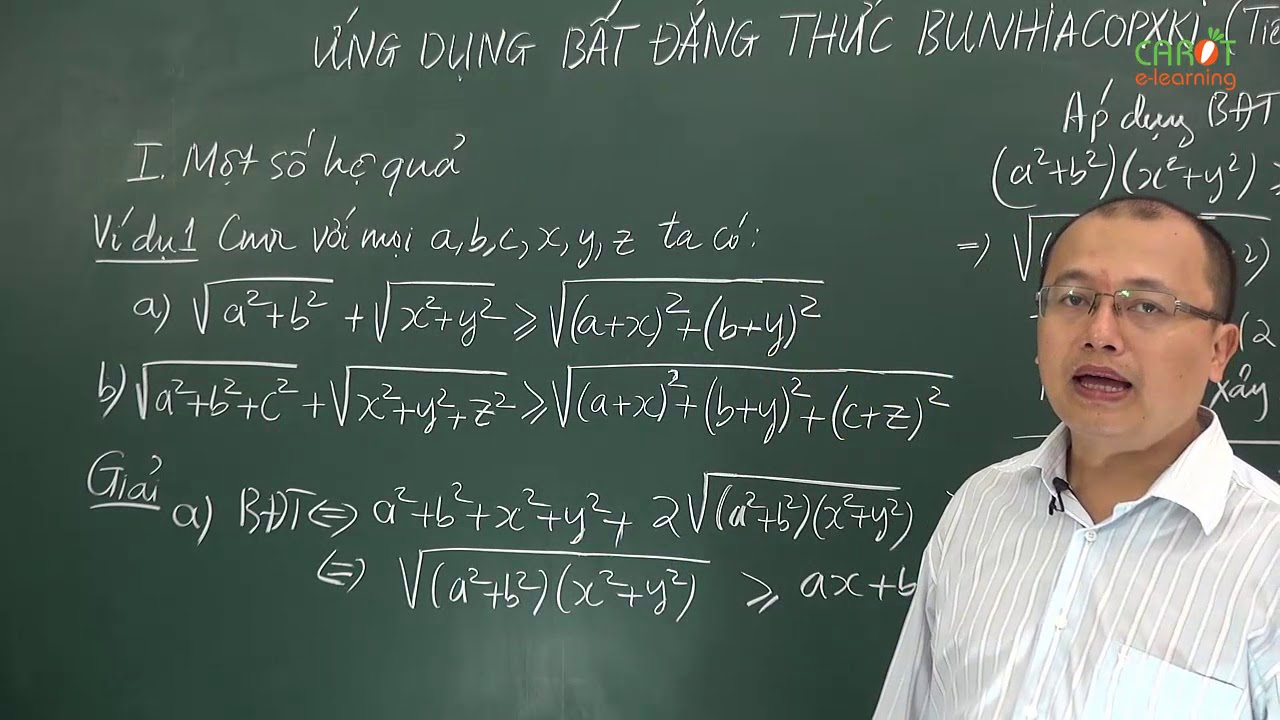 ỨNG DỤNG BẤT ĐẲNG THỨC BUNHIACOPXKI (Tiế
CAROT
e-learning
I. Một số hệ quả
Ví dụ 1 Cmr với mọi a, b, c, x, y, z ta có:
a) √(a²+b²) + √(x²+y²) ≥ √((a+x)²+(b+y)²)
b) √(a²+b²+c²) + √(x²+y²+z²) ≥ √((a+x)²+(b+y)²+(c+z)²)
Giải
a) BĐT ⇔ a²+b²+x²+y²+ 2√((a²+b²)(x²+y²))
⇔ √((a²+b²)(x²+y²)) ≥ ax+b
Áp dụng BĐT
(a²+b²)(x²+y²) ≥
⇒ √(
xảy